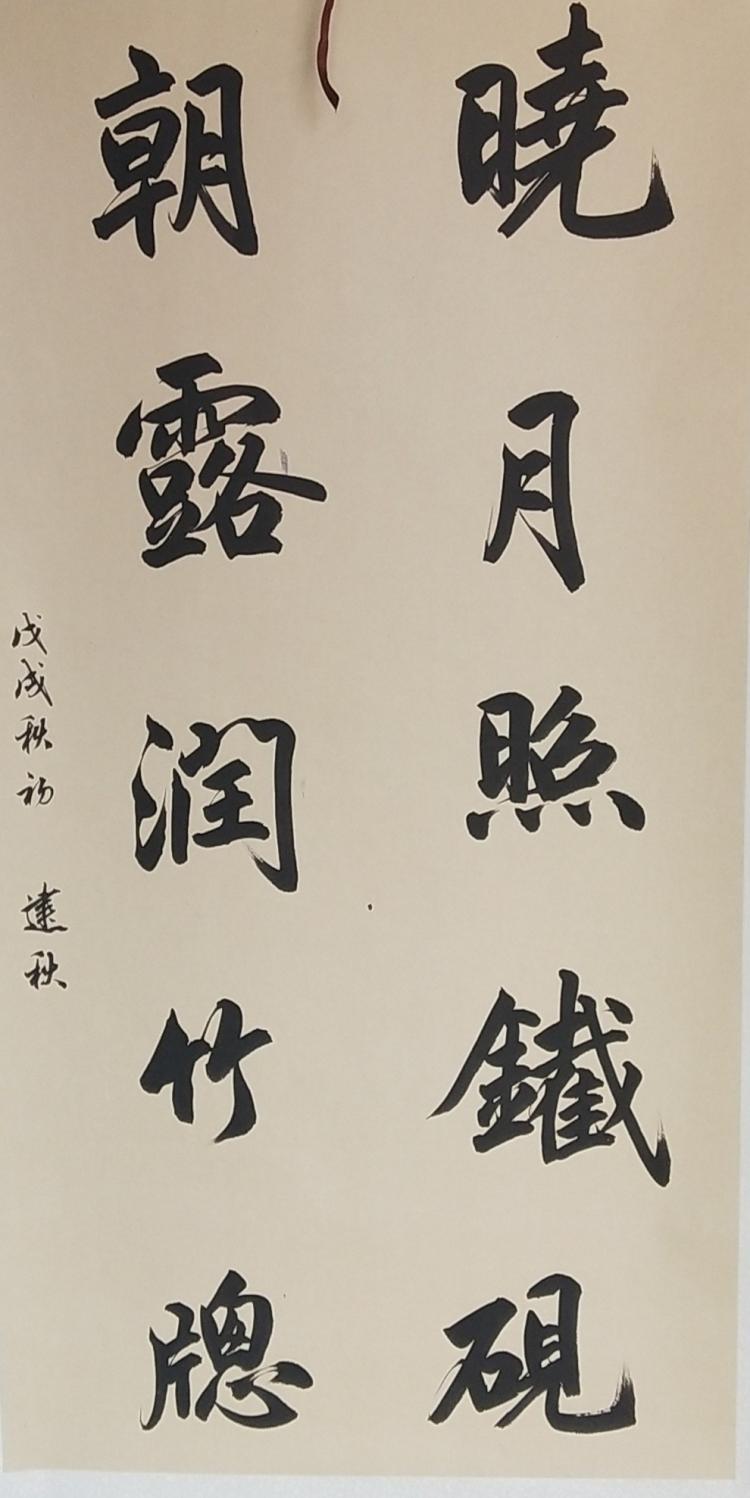 曉月照鐵硯
朝露润竹牕
戊戌秋初 達秋